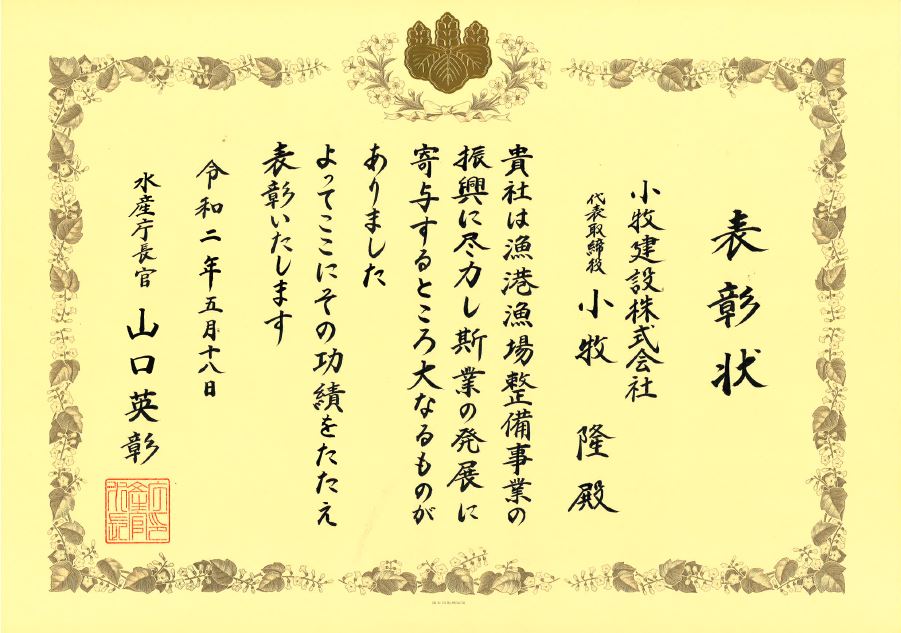 表彰状
小牧建設株式会社
代表取締役 小牧 隆 殿
貴社は漁港漁場整備事業の
振興に尽力し斯業の発展に
寄与するところ大なるものが
ありました
よってここにその功績をたたえ
表彰いたします
令和二年五月十八日
水産庁長官 山口英彰